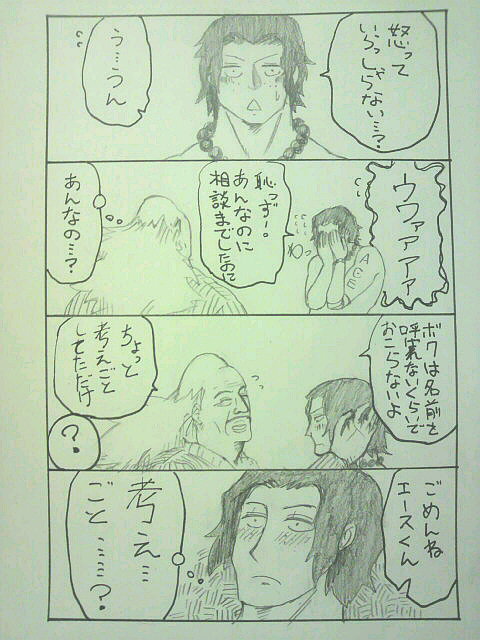 怒って
いらっしゃらない…?
う…うん
ウワァァァァ
恥っずー。
あんなのに
相談までしたのに
ACE
あんなの…?
ボクは名前を
呼ばれないくらいで
おこらないよ
ちょっと
考えごと
してただけ
?
ごめんね
エースくん
考え…
ごと……?